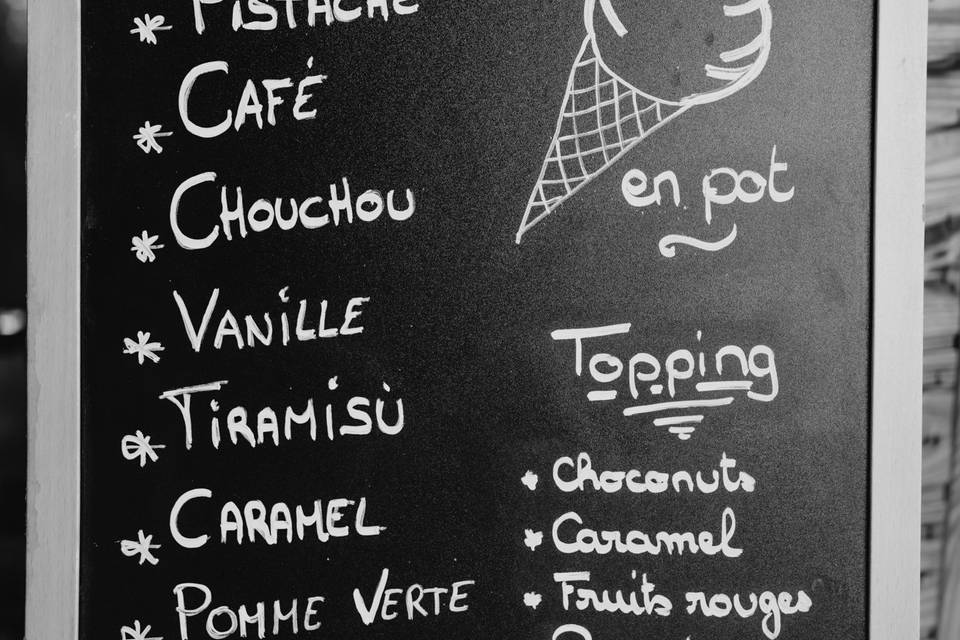 PISTACHE
CAFÉ
CHOUCHOU
VANILLE
TIRAMISÙ
CARAMEL
POMME VERTE
en pot
Topping
Choconuts
Caramel
Fruits rouges